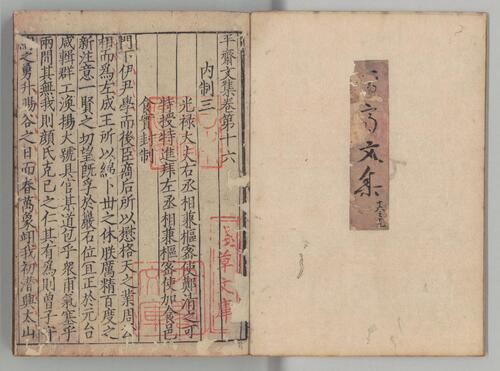 齋文集
平齋文集卷第十六
内制三
光祿大夫右丞相兼樞密使鄭清之可
特授特進拜左丞相兼樞密使加食邑
食實封制
門下伊尹學而後臣商后所以懋格天之業周公
相而爲左成王所以綿卜丗之休朕厲精百度之
新注意一賢之切望旣孚於巖石位宜正於元台
咸輯群工渙揚大號具官某道包乎衆甫氣塞乎
兩間其無我則顔氏克己之仁其有爲則曾子守
之勇升暘谷之日而春萬象翊我初潛興太山
淺草文庫